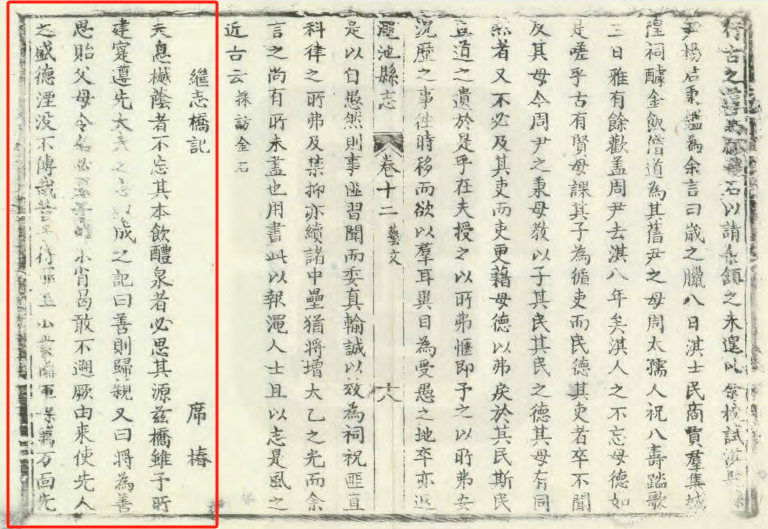 行古之石以請余顏之未遑以余校試淇
尹楊君秉鑑為余言曰歲之臘八日淇士民商賈羣集城
隍祠醵金飲僧道為其舊尹之母周太孺人祝八壽踏歌
三日雅有餘歡盖周尹去淇八年矣淇人之不忘母德如
是嗟乎古有賢母課其子為循吏而民德其吏者卒不聞
及其母今周尹之秉母教以子其民其民之德其母有同
然者又不必及其吏而吏更藉母德以弗戾於其民斯民
直道之遺於是乎在夫授之以所弗愜即予之以所弗安
況歷之事往時移而欲以羣耳異目為受愚之地卒亦返
澠池縣志 卷十二 藝文 十八
是以自愚然則事匪習聞而委真輸誠以效為祠祝匪直
科律之所弗及禁抑亦續諸中壘猶將增太乙之光而余
言之尚有所未盡也用書此以報澠人士且以志是風之
近古云 採訪金石
繼志橋記 席椿
夫息樾蔭者不忘其本飲醴泉者必思其源茲橋雖予所
建寔遵先大夫之志以成之記曰善則歸親又曰將為善
思貽父母令名不肖曷敢不遡厥由來使先人
之盛德湮沒不傳哉山萬方面先